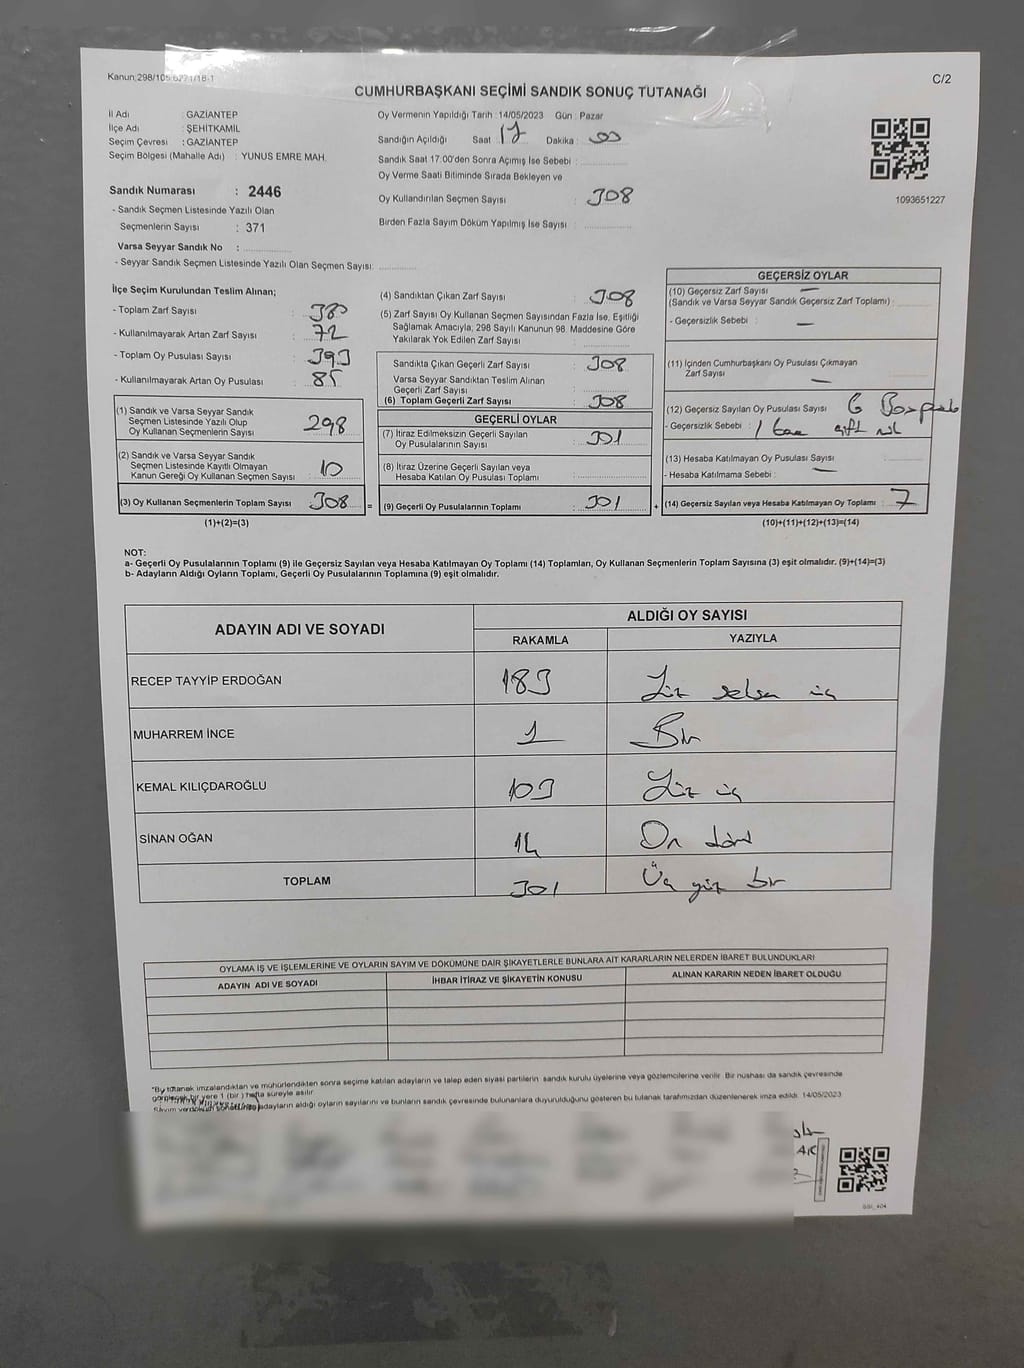 Kanun 298/105 6271/18-1
C/2
CUMHURBAŞKANI SEÇİMİ SANDIK SONUÇ TUTANAĞI
İl Adı : GAZİANTEP
İlçe Adı : ŞEHİTKAMİL
Seçim Çevresi : GAZİANTEP
Seçim Bölgesi (Mahalle Adı) : YUNUS EMRE MAH.
Sandık Numarası : 2446
- Sandık Seçmen Listesinde Yazılı Olan
Seçmenlerin Sayısı : 371
Varsa Seyyar Sandık No :
- Seyyar Sandık Seçmen Listesinde Yazılı Olan Seçmen Sayısı:
Oy Vermenin Yapıldığı Tarih :14/05/2023 Gün : Pazar
Sandığın Açıldığı Saat 17 Dakika : 00
Sandık Saat 17:00'den Sonra Açımış İse Sebebi :
Oy Verme Saati Bitiminde Sırada Bekleyen ve
Oy Kullandırılan Seçmen Sayısı : 308
Birden Fazla Sayım Döküm Yapılmış İse Sayısı :
1093651227
İlçe Seçim Kurulundan Teslim Alınan;
- Toplam Zarf Sayısı : 380
- Kullanılmayarak Artan Zarf Sayısı : 72
- Toplam Oy Pusulası Sayısı : 393
- Kullanılmayarak Artan Oy Pusulası : 85
(1) Sandık ve Varsa Seyyar Sandık
Seçmen Listesinde Yazılı Olup
Oy Kullanan Seçmenlerin Sayısı : 298
(2) Sandık ve Varsa Seyyar Sandık
Seçmen Listesinde Kayıtlı Olmayan
Kanun Gereği Oy Kullanan Seçmen Sayısı : 10
(3) Oy Kullanan Seçmenlerin Toplam Sayısı : 308
(1)+(2)=(3)
(4) Sandıktan Çıkan Zarf Sayısı : 308
(5) Zarf Sayısı Oy Kullanan Seçmen Sayısından Fazla İse, Eşitliği
Sağlamak Amacıyla; 298 Sayılı Kanunun 98. Maddesine Göre
Yakılarak Yok Edilen Zarf Sayısı :
Sandıkta Çıkan Geçerli Zarf Sayısı : 308
Varsa Seyyar Sandıktan Teslim Alınan
Geçerli Zarf Sayısı :
(6) Toplam Geçerli Zarf Sayısı : 308
GEÇERLİ OYLAR
(7) İtiraz Edilmeksizin Geçerli Sayılan
Oy Pusulalarının Sayısı : 301
(8) İtiraz Üzerine Geçerli Sayılan veya
Hesaba Katılan Oy Pusulası Toplamı :
= (9) Geçerli Oy Pusulalarının Toplamı : 301 +
GEÇERSİZ OYLAR
(10) Geçersiz Zarf Sayısı —
(Sandık ve Varsa Seyyar Sandık Geçersiz Zarf Toplamı) :
- Geçersizlik Sebebi : —
(11) İçinden Cumhurbaşkanı Oy Pusulası Çıkmayan
Zarf Sayısı —
(12) Geçersiz Sayılan Oy Pusulası Sayısı : 6
- Geçersizlik Sebebi : 1 tane çift
(13) Hesaba Katılmayan Oy Pusulası Sayısı :
- Hesaba Katılmama Sebebi : —
(14) Geçersiz Sayılan veya Hesaba Katılmayan Oy Toplamı : 7
(10)+(11)+(12)+(13)=(14)
NOT:
a- Geçerli Oy Pusulalarının Toplamı (9) ile Geçersiz Sayılan veya Hesaba Katılmayan Oy Toplamı (14) Toplamları, Oy Kullanan Seçmenlerin Toplam Sayısına (3) eşit olmalıdır. (9)+(14)=(3)
b- Adayların Aldığı Oyların Toplamı, Geçerli Oy Pusulalarının Toplamına (9) eşit olmalıdır.
ADAYIN ADI VE SOYADI ALDIĞI OY SAYISI
RAKAMLA YAZIYLA
RECEP TAYYİP ERDOĞAN 183 Yüz seksen üç
MUHARREM İNCE 1 Bir
KEMAL KILIÇDAROĞLU 103 Yüz üç
SİNAN OĞAN 14 On dört
TOPLAM 301 Üç yüz bir
OYLAMA İŞ VE İŞLEMLERİNE VE OYLARIN SAYIM VE DÖKÜMÜNE DAİR ŞİKAYETLERLE BUNLARA AİT KARARLARIN NELERDEN İBARET BULUNDUKLARI
ADAYIN ADI VE SOYADI İHBAR İTİRAZ VE ŞİKAYETİN KONUSU ALINAN KARARIN NEDEN İBARET OLDUĞU
"Bu tutanak imzalandıktan ve mühürlendikten sonra seçime katılan adayların ve talep eden siyasi partilerin sandık kurulu üyelerine veya gözlemcilerine verilir. Bir nüshası da sandık çevresinde
görülecek bir yere 1 (bir) hafta süreyle asılır
adayların aldığı oyların sayılarını ve bunların sandık çevresinde bulunanlara duyurulduğunu gösteren bu tutanak tarafımızdan düzenlenerek imza edildi. 14/05/2023